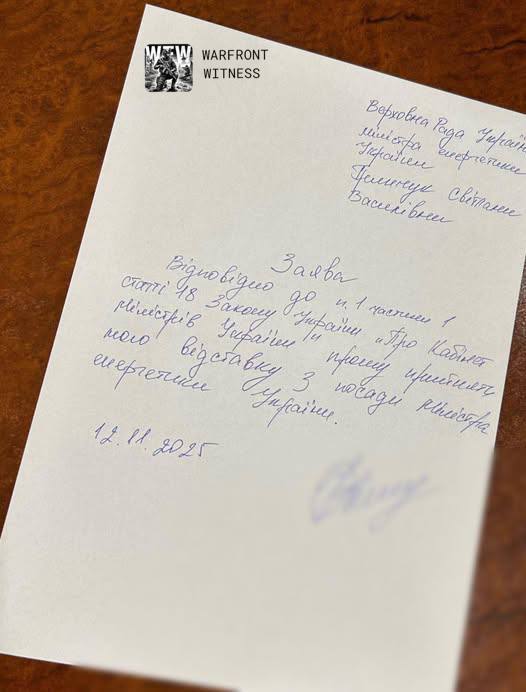 WTW
WARFRONT
WITNESS
Верховна Рада Україн
міністра енергетики
України
Гринчук Світлани
Василівни
Заява
Відповідно до п.1 частини 1
статті 18 Закону України „Про Кабінет
Міністрів України" прошу прийняти
мою відставку з посади міністра
енергетики України.
12.11.2025